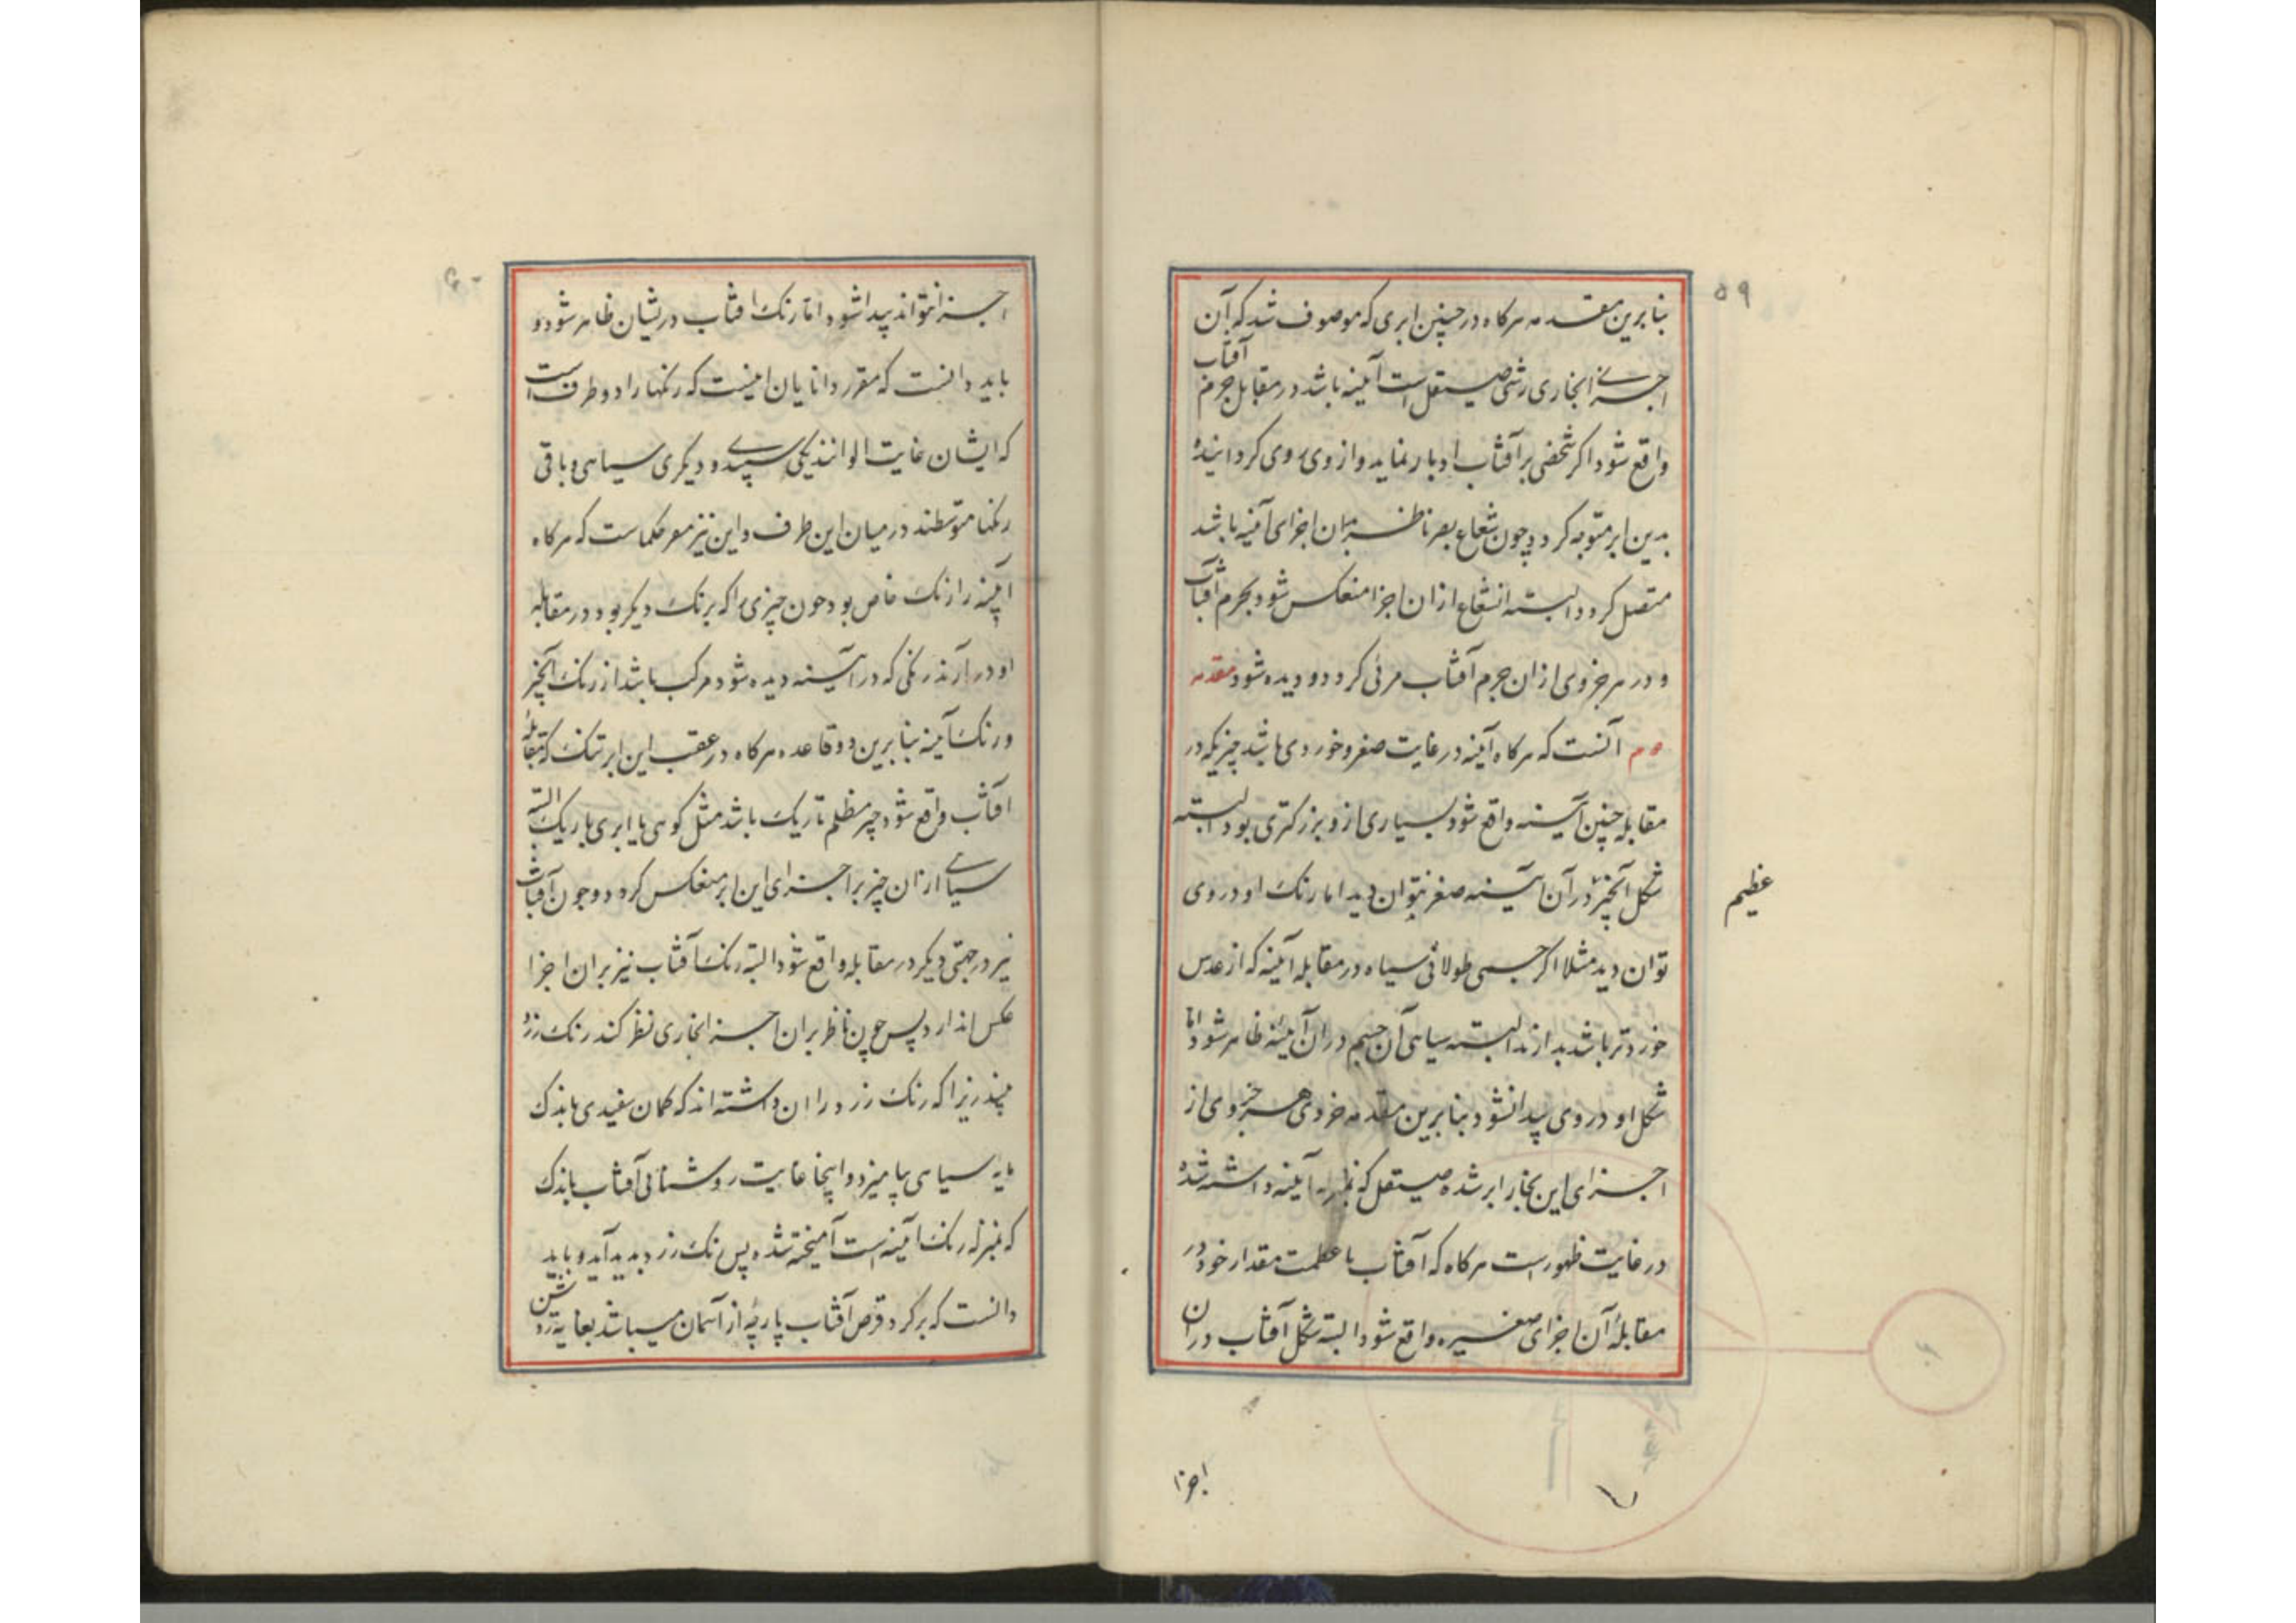 ۵۹
بنابرین مقدمه هرکاه در چنین ابری که موصوف شد که آن
اجزای بخاری رشی صیقل است آینه باشد در مقابل جرم آفتاب
واقع شود اکر شخصی بر آفتاب ادبار نماید و از وی روی کردانیده
بدین ابر متوجه کردد و چون شعاع بصر ناظر بران اجزای آینه باشد
متصل کردد البته انشعاع ازان اجزا منعکس شود بجرم آفتاب
و در هر جزوی ازان جرم آفتاب مرئی کردد و دیده شود مقدمه
دوم آنست که هرکاه آینه در غایت صغر و خوردی باشد چیزیکه در
مقابله چنین آینه واقع شود بسیاری ازو بزرکتری بود البته
شکل آنچیز در آن آینه صغر نتوان دید اما رنک او در وی
عظیم
توان دید مثلا اکر جسمی طولانی سیاه در مقابله آینه که از عدس
خوردتر باشد بدارند البته سیاهی آن جسم در آن آینه ظاهر شود اما
شکل او در وی پیدا نشود بنابرین مقدمه خردی هر جزوی از
اجزای این بخار ابر شده صیقل که بمنزله آینه داشته شده
در غایت ظهورست هرکاه که آفتاب با عظمت مقدار خود در
مقابلهٔ آن اجزای صغیره واقع شود البته شکل آفتاب دران
اجزا
۶۰
اجزا نتواند پیدا شود اما رنک افتاب دریشان ظاهر شود و
باید دانست که مقرر دانایان اینست که رنکها را دو طرف است
که ایشان غایت الوانند یکی سپیدی و دیکری سیاهی و باقی
رنکها متوسطند در میان این طرف و این نیز مقرر حکماست که هرکاه
آینه را رنک خاص بود چون چیزی را که برنک دیکر بود در مقابله
او در آرند رنکی که در آینه دیده شود مرکب باشد از رنک آنچیز
و رنک آینه بنابرین دو قاعده هرکاه در عقب این ابر تنک که بمقابلهٔ
افتاب واقع شود چیز مظلم تاریک باشد مثل کوهی یا ابری باریک البته
سیاهی ازان چیز بر اجزای این ابر منعکس کردد و چون آفتاب
نیز در جهتی دیکر در مقابله واقع شود البته رنک آفتاب نیز بران اجزا
عکس اندازد پس چون ناظر بران اجزا بخاری نظر کند رنک زرد
بیند زیرا که رنک زرد را ان داشته اند که کمان سفیدی باندک
مایه سیاهی بیامیزد و اینجا غایت روشنائی آفتاب باندک
که بمنزله رنک آینه است آمیخته شده پس رنک زرد پدید آید و باید
دانست که برکرد قرص آفتاب پارهٔ از آسمان میباشد بغایه روشن